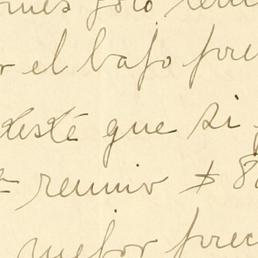 solo
r el bajo prec
testé que si
reunio $ 8
mejor prec